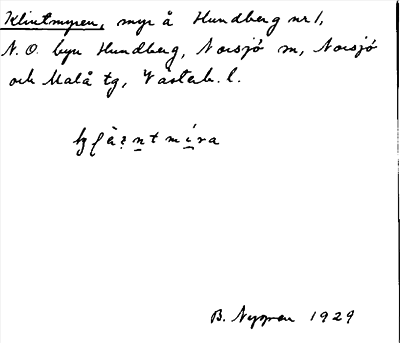 Klintmyren, myr å Hundberg nr 1,
N.O. byn Hundberg, Norsjö sn, Norsjö
och Malå tg, Västerb. l.
B. Nygren 1929